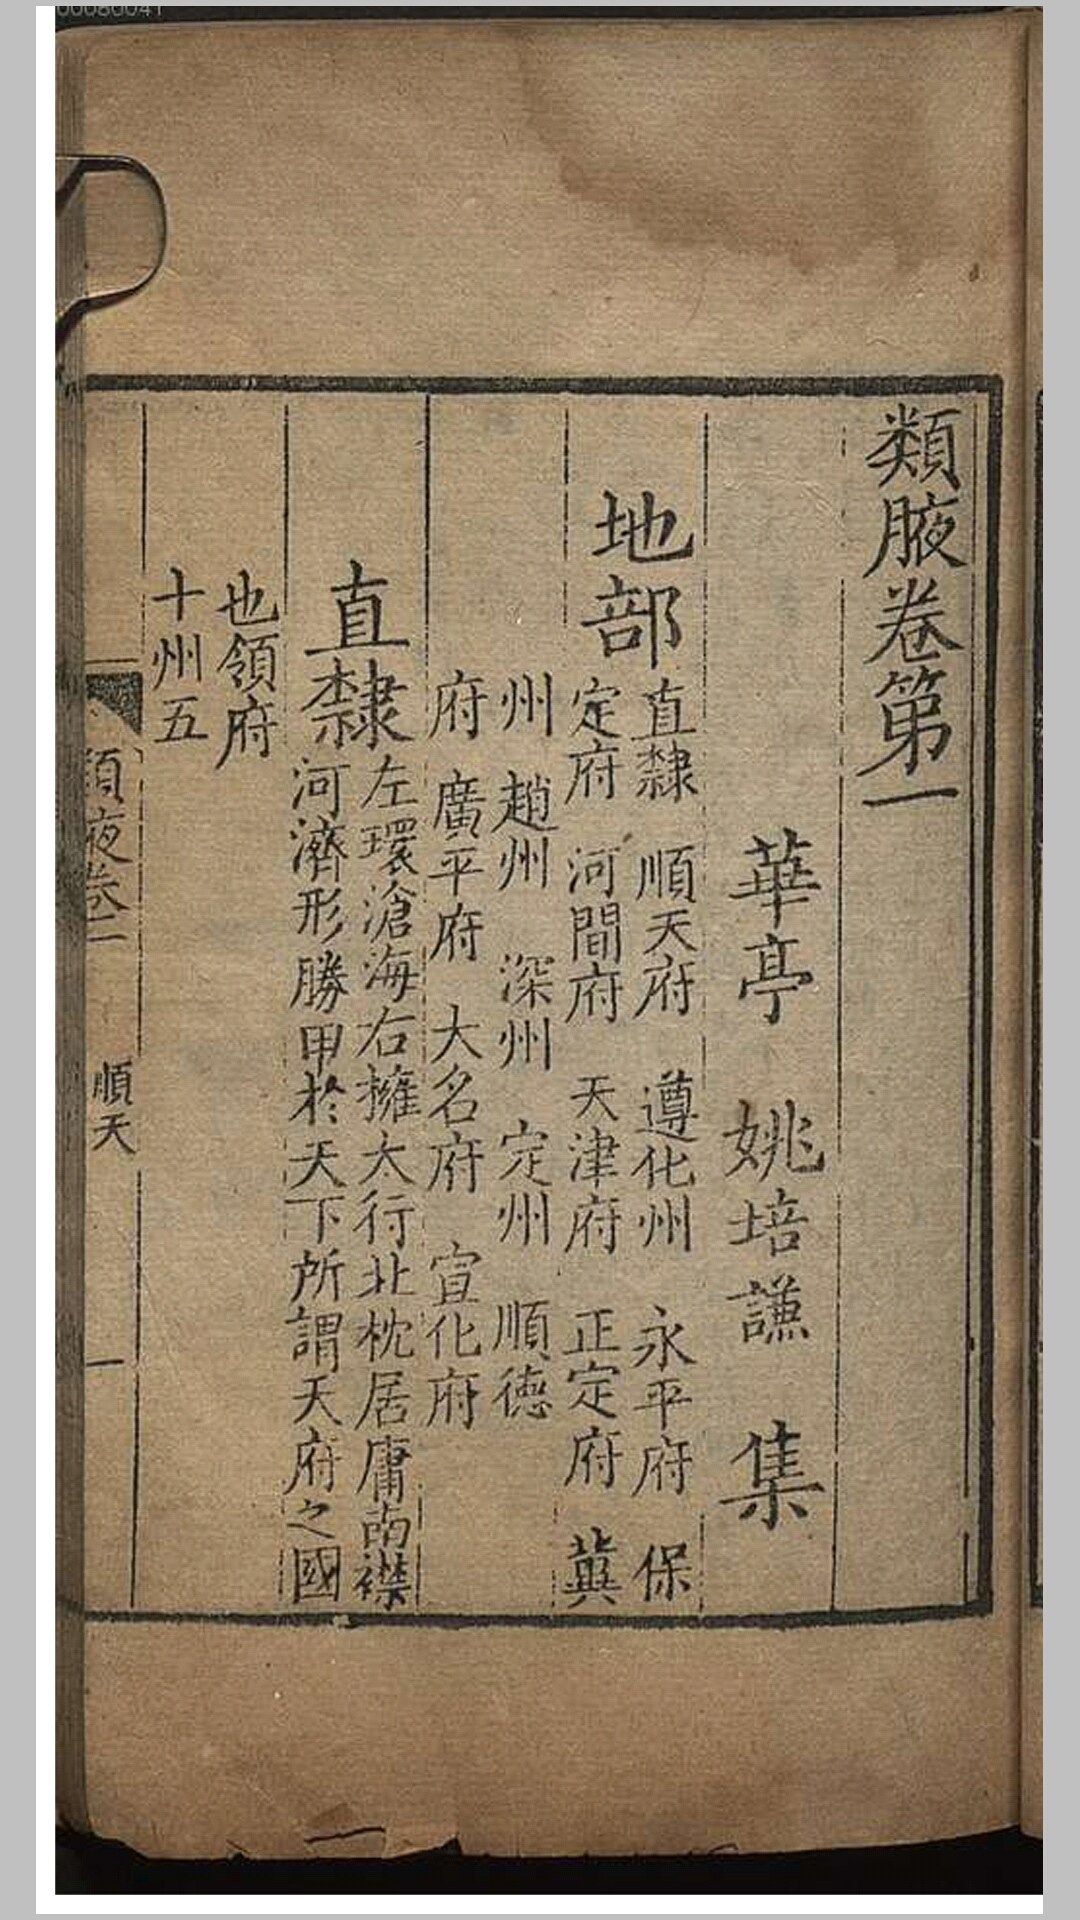 類腋卷第一
華亭 姚培謙 集
地部
直隸 順天府 遵化州 永平府 保
定府 河間府 天津府 正定府 冀
州 趙州 深州 定州 順德
府 廣平府 大名府 宣化府
直隸
左環滄海右擁太行北枕居庸南襟
河濟形勝甲於天下所謂天府之國
也領府
十州五
順天
一